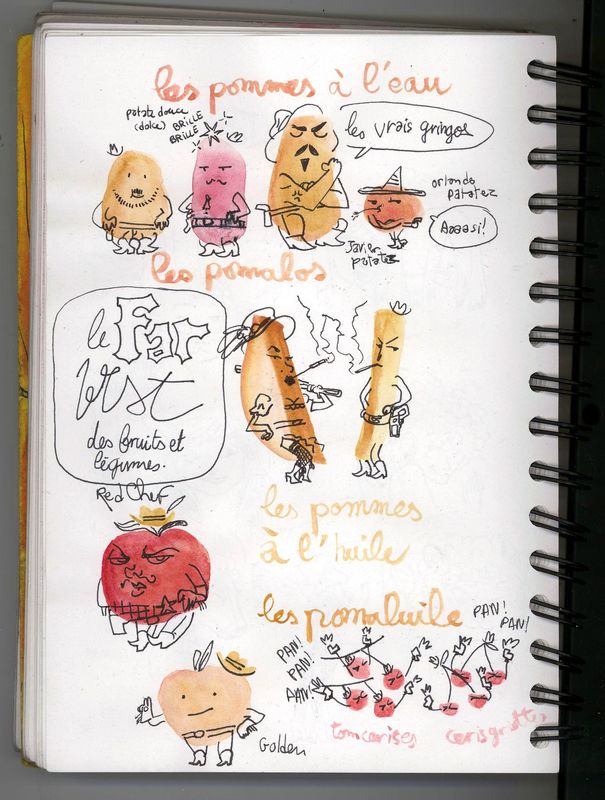 les pommes à l'eau
patate douce
(dolce)
BRILLE
BRILLE
les vrais gringos
orlando
patatez
Aaaasi!
Javier
patatez
les pomalos
le Far
West
des fruits et
légumes.
Red Chef
les pommes
à l'huile
les pomaluile
PAN!
PAN!
PAN!
PAN!
AAN!
tomcerises
Golden